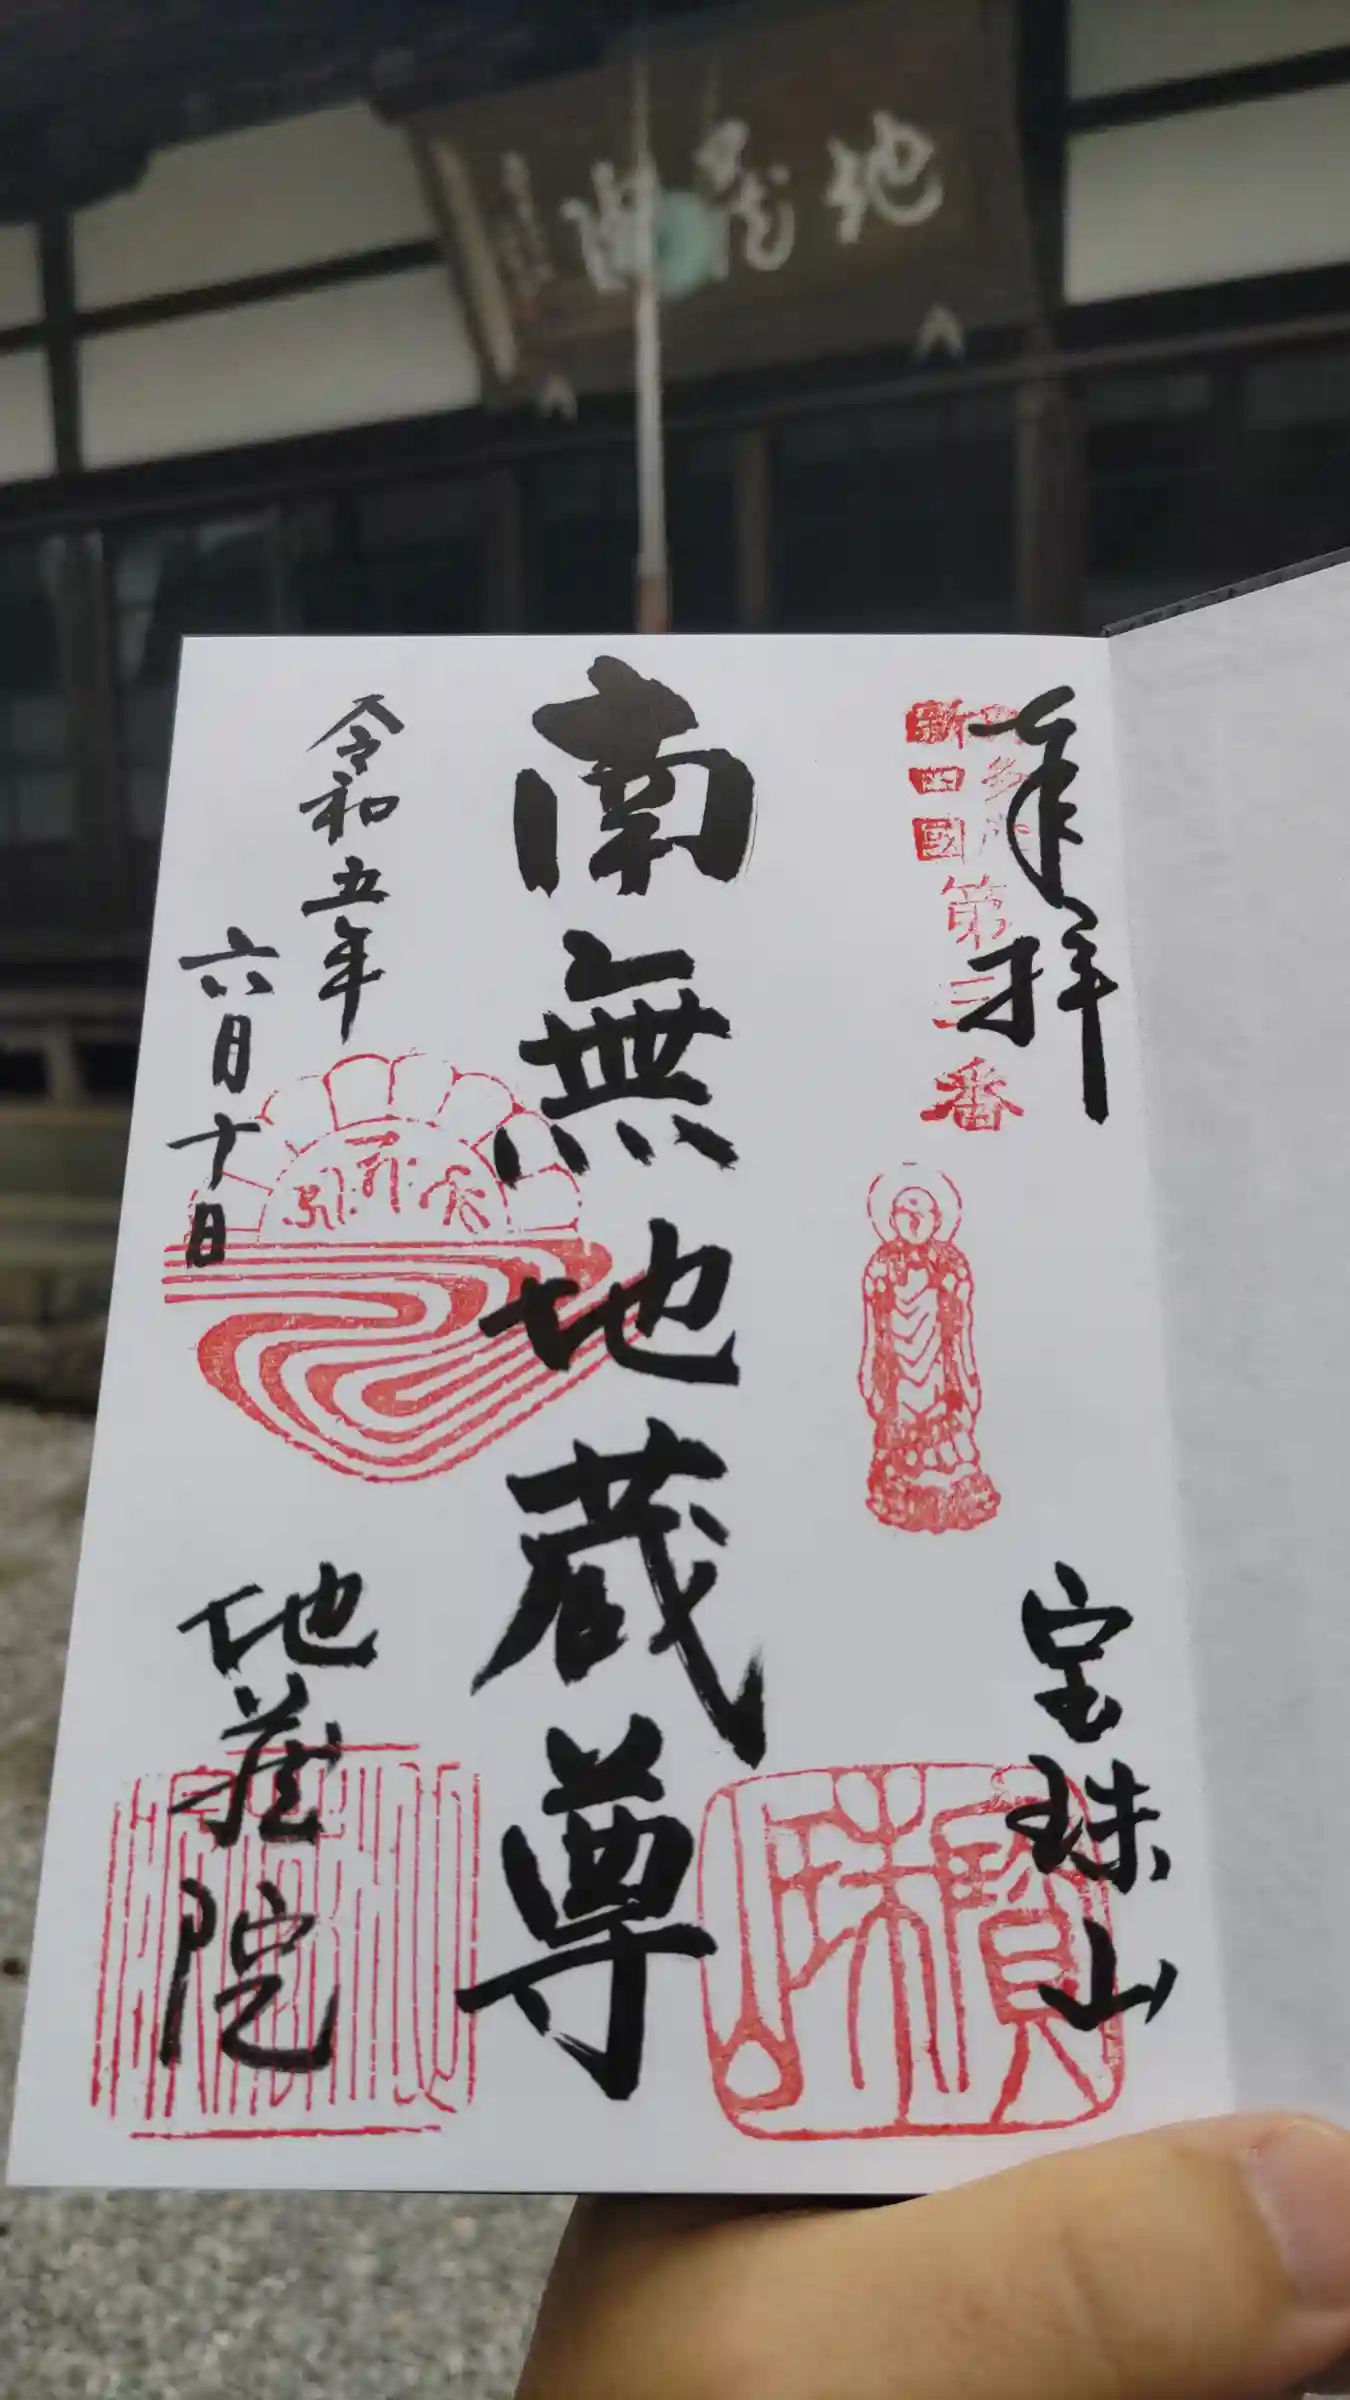 地蔵院
奉拝
新四國
第三番
宝珠山
寶珠山
南無地蔵尊
令和五年
六月十日
地蔵院